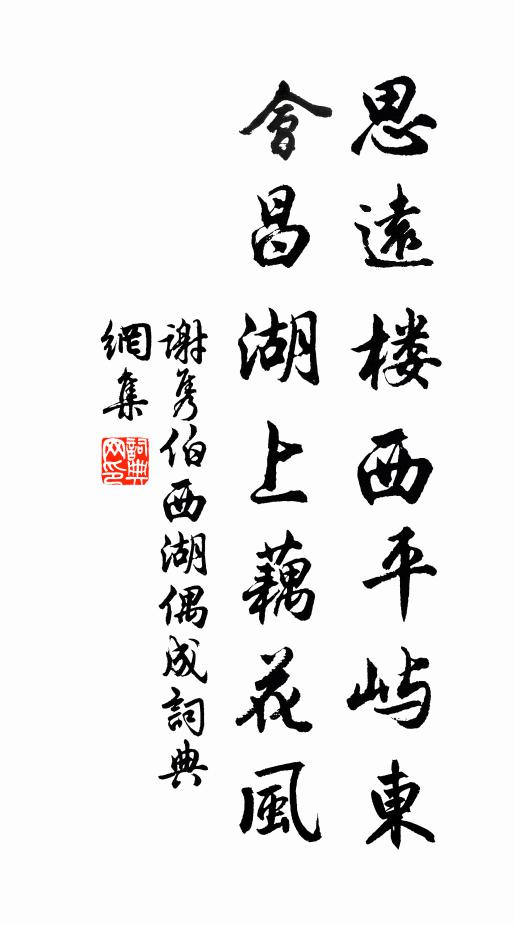 思遠楼西平屿東
會昌湖上藕花風
谢隽伯西湖偶成詞典
網集
詞典網印